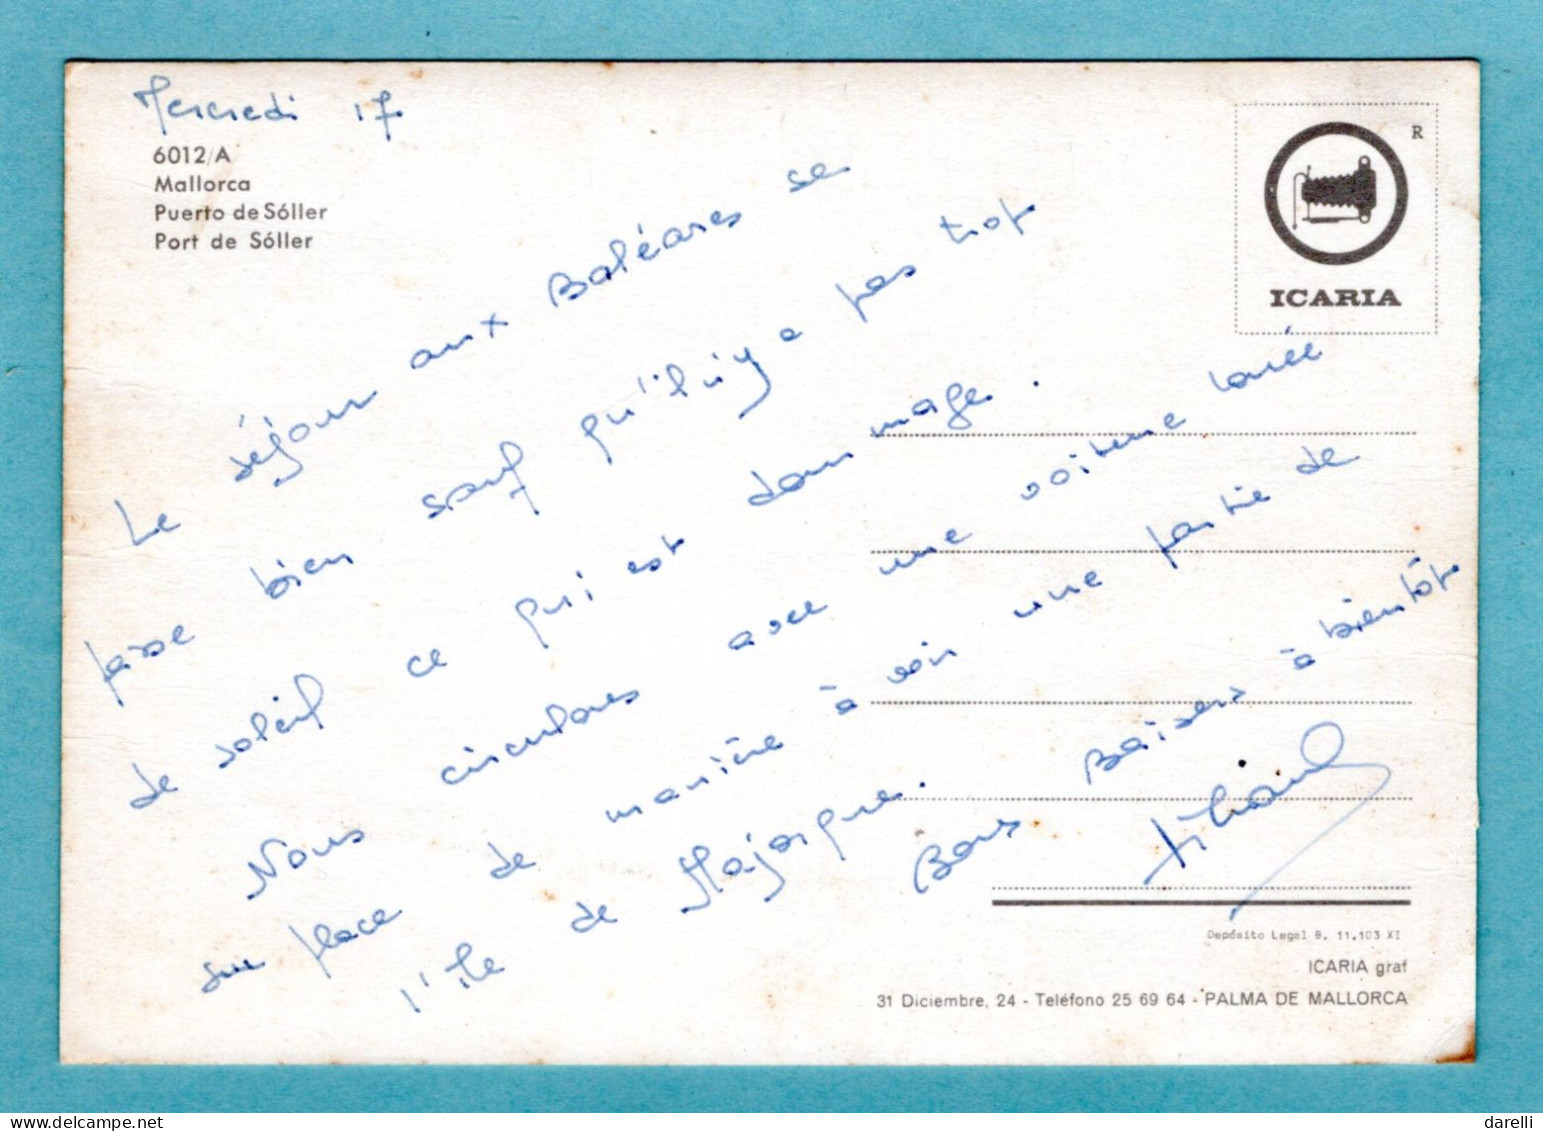 Mercredi 17
6012/A
Mallorca
Puerto de Sóller
Port de Sóller
R
ICARIA
Le séjour aux Baléares se
passe bien sauf qu'il n'y a pas trop
de soleil ce qui est dommage.
Nous circulons avec une voiture louée
sur place de manière à voir une partie de
l'île de Majorque. Bons Baisers à bientôt
Depósito Legal B. 11.103 XI
ICARIA graf
31 Diciembre, 24 - Teléfono 25 69 64 - PALMA DE MALLORCA
darelli